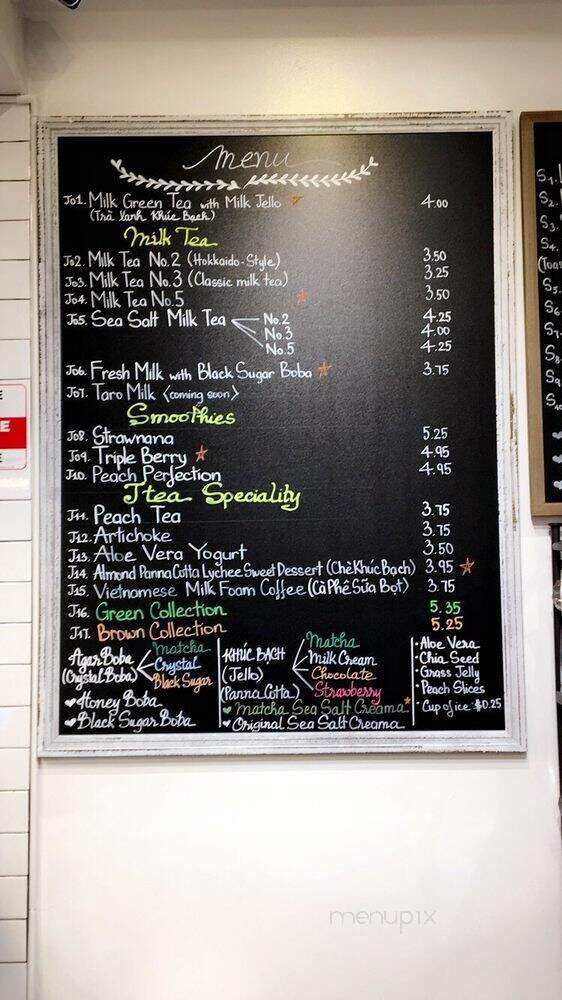 menu
J01. Milk Green Tea with Milk Jello 4.00
(Trà Xanh Khúc Bạch)
Milk Tea
J02. Milk Tea No.2 (Hokkaido-Style) 3.50
J03. Milk Tea No.3 (Classic milk tea) 3.25
J04. Milk Tea No.5 3.50
J05. Sea Salt Milk Tea No.2 4.25
No.3 4.00
No.5 4.25
J06. Fresh Milk with Black Sugar Boba 3.75
J07. Taro Milk <coming soon>
Smoothies
J08. Strawnana 5.25
J09. Triple Berry 4.95
J10. Peach Perfection 4.95
Jtea Speciality
J11. Peach Tea 3.75
J12. Artichoke 3.75
J13. Aloe Vera Yogurt 3.50
J14. Almond Panna Cotta Lychee Sweet Dessert (Chè Khúc Bạch) 3.95
J15. Vietnamese Milk Foam Coffee (Cà Phê Sữa Bọt) 3.75
J16. Green Collection 5.35
J17. Brown Collection 5.25
Agar Boba
(Crystal Boba)
Matcha
Crystal
Black Sugar
Honey Boba
Black Sugar Boba
KHÚC BẠCH
(Jello)
(Panna Cotta)
Matcha
Milk Cream
Chocolate
Strawberry
Matcha Sea Salt Creama
Original Sea Salt Creama
• Aloe Vera
• Chia Seed
• Grass Jelly
• Peach Slices
• Cup of ice: $0.25
S1.
S2.
S3.
S4.
S5.
S6.
S7.
S8.
S9
menupix